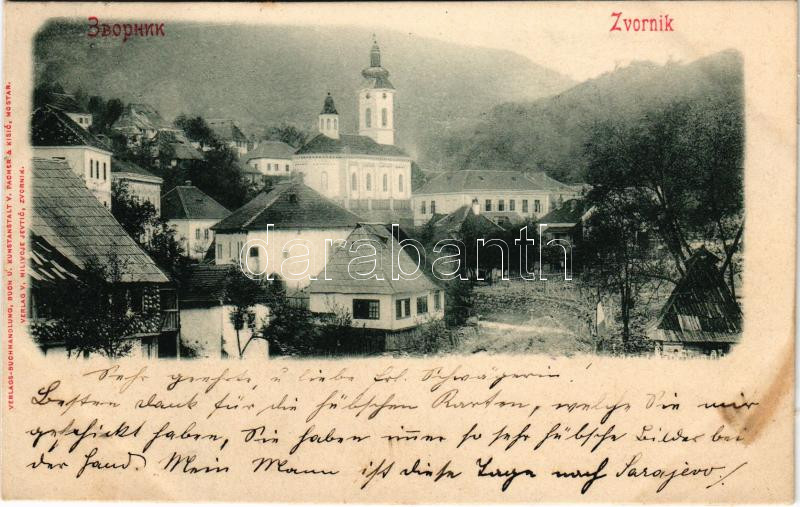 Зворник
Zvornik
VERLAGS-BUCHHANDLUNG, BUCH U. KUNSTANSTALT V. PACHER & KISIĆ, MOSTAR.
VERLAG V. MILIVOJE JEVTIĆ, ZVORNIK.
darabanth
Sehr geehrte, u liebe Frl. Schwägerin!
Besten Dank für die hübschen Karten, welche Sie mir
geschickt haben, Sie haben immer so sehr hübsche Bilder bei
der Hand. Mein Mann ist diese Tage nach Sarajevo/